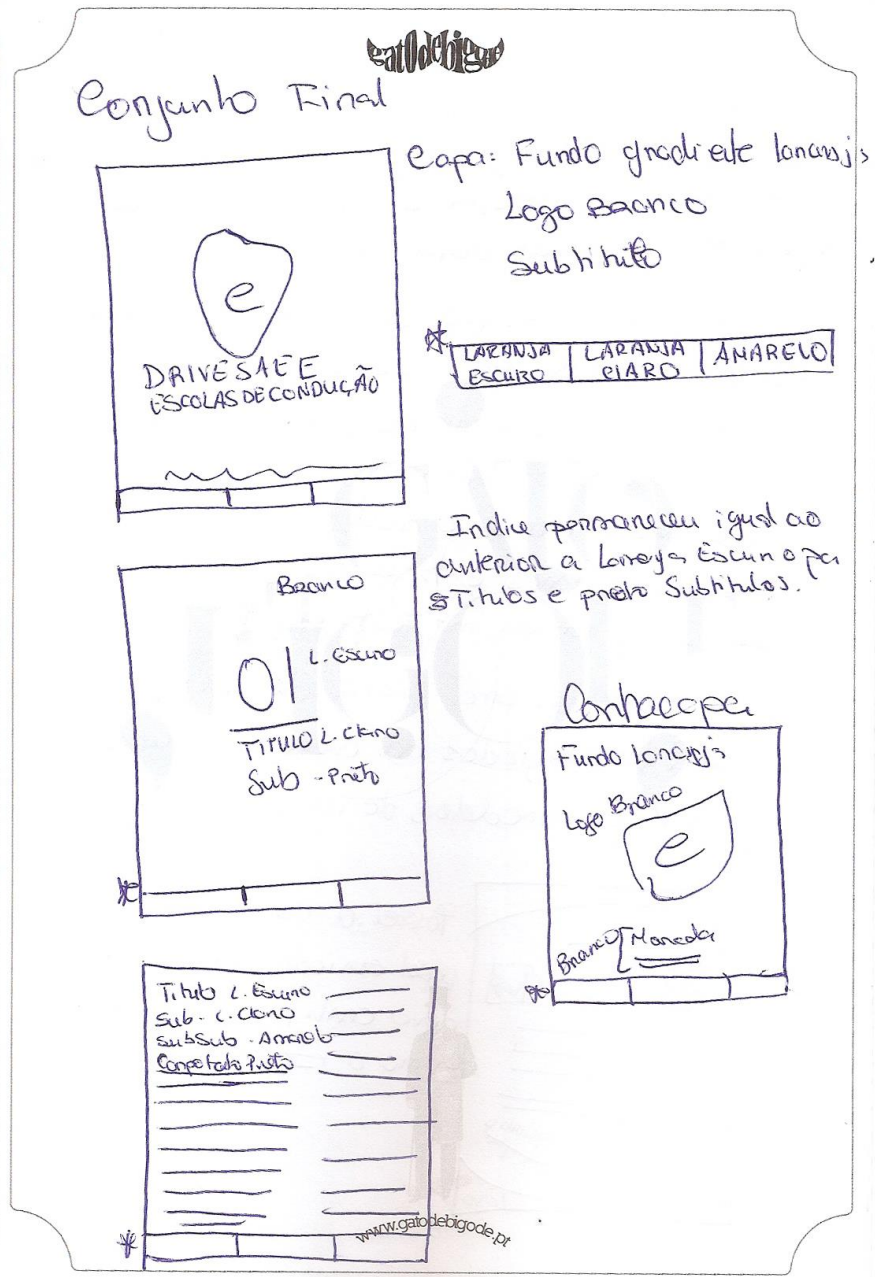 gatOdebigode
Conjunto Final
Capa: Fundo gradiente laranja
Logo Branco
Subtitulo
e
DRIVESAEE
ESCOLAS DE CONDUÇÃO
* LARANJA ESCURO | LARANJA CLARO | AMARELO
Indice permaneceu igual ao
anterior a Laranja Escuro pa
Titulos e preto Subtitulos.
Branco
01 L. Escuro
TITULO L. Claro
Sub - Preto
*
Contracapa
Fundo laranja
Logo Branco
e
Branco [ Morada
*
Titulo L. Escuro
Sub - L. Claro
SubSub - Amarelo
Preto
*
www.gatodebigode.pt